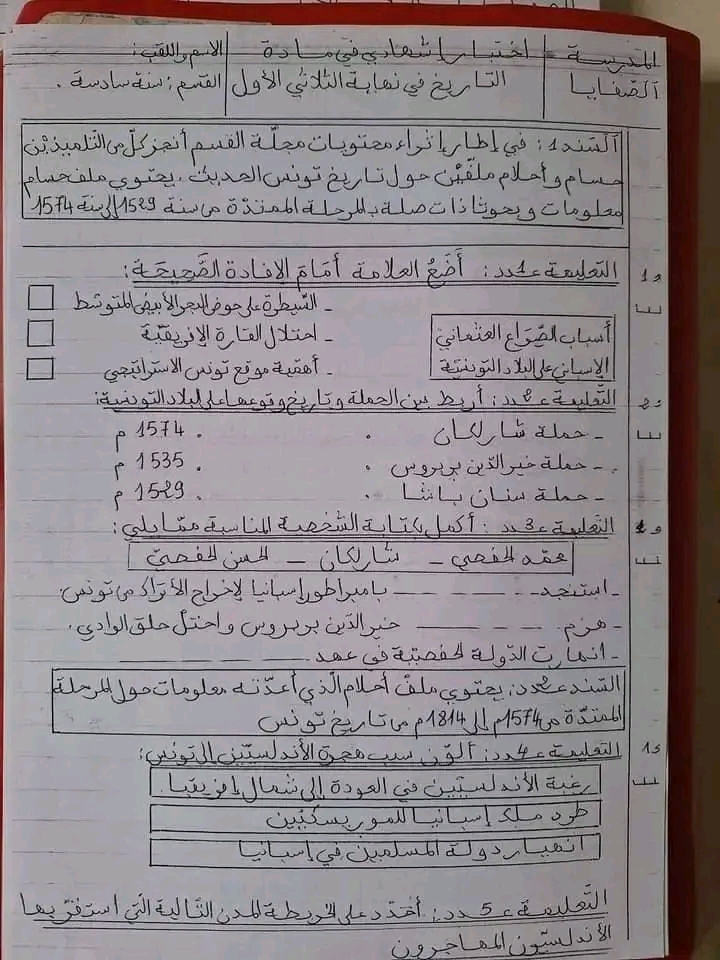 المدرسة اختبار إشهادي في مادة الاسم واللقب:
الصفايا التاريخ في نهاية الثلاثي الأول القسم: سنة سادسة.
السند 1: في إطار إثراء محتويات مجلّة القسم أنجز كلّ من التلميذيْن
حسام وأحلام ملفّيْن حول تاريخ تونس الحديث. يحتوي ملف حسام
معلومات وبحوثا ذات صلة بالمرحلة الممتدّة من سنة 1529 إلى سنة 1574
التعليمة عـ1ـدد: أَضَعُ العلامة أمَامَ الإفادة الصَّحِيحَة:
أسباب الصّراع العثماني
الإسباني على البلاد التونسيّة
_ السّيطرة على حوض البحر الأبيض المتوسّط
_ احتلال القارة الإفريقيّة
_ أهمّية موقع تونس الاستراتيجي
التّعليمة عـ2ـدد: أربط بين الحملة وتاريخ وقوعها على البلاد التونسية:
_ حملة شارلكان . . 1574 م
_ حملة خير الدّين بربروس . . 1535 م
_ حملة سنان باشا . . 1529 م
التّعليمة عـ3ـدد: أكمل بكتابة الشخصية المناسبة ممّا يلي:
محمّد الحفصي _ شارلكان _ الحسن الحفصيّ
_ استنجد _ _ _ _ بامبراطور إسبانيا لإخراج الأتراك من تونس.
_ هزم _ _ _ _ خير الدّين بربروس واحتلّ حلق الوادي.
_ انهارت الدّولة الحفصيّة في عهد _ _ _ _ _ _
السّند عـ2ـدد: يحتوي ملفّ أحلام الّذي أعدّته معلومات حول المرحلة
الممتدّة من 1574م إلى 1814م من تاريخ تونس
التعليمة عـ4ـدد: ألوّن سبب هجرة الأندلسيّين إلى تونس:
رغبة الأندلسيّين في العودة إلى شمال إفريقيا.
طرد ملك إسبانيا للموريسكيّين
انهيار دولة المسلمين في إسبانيا
التّعليمة عـ5ـدد: أحدّد على الخريطة المدن التّالية الّتي استقرّ بها
الأندلسيّون المهاجرون